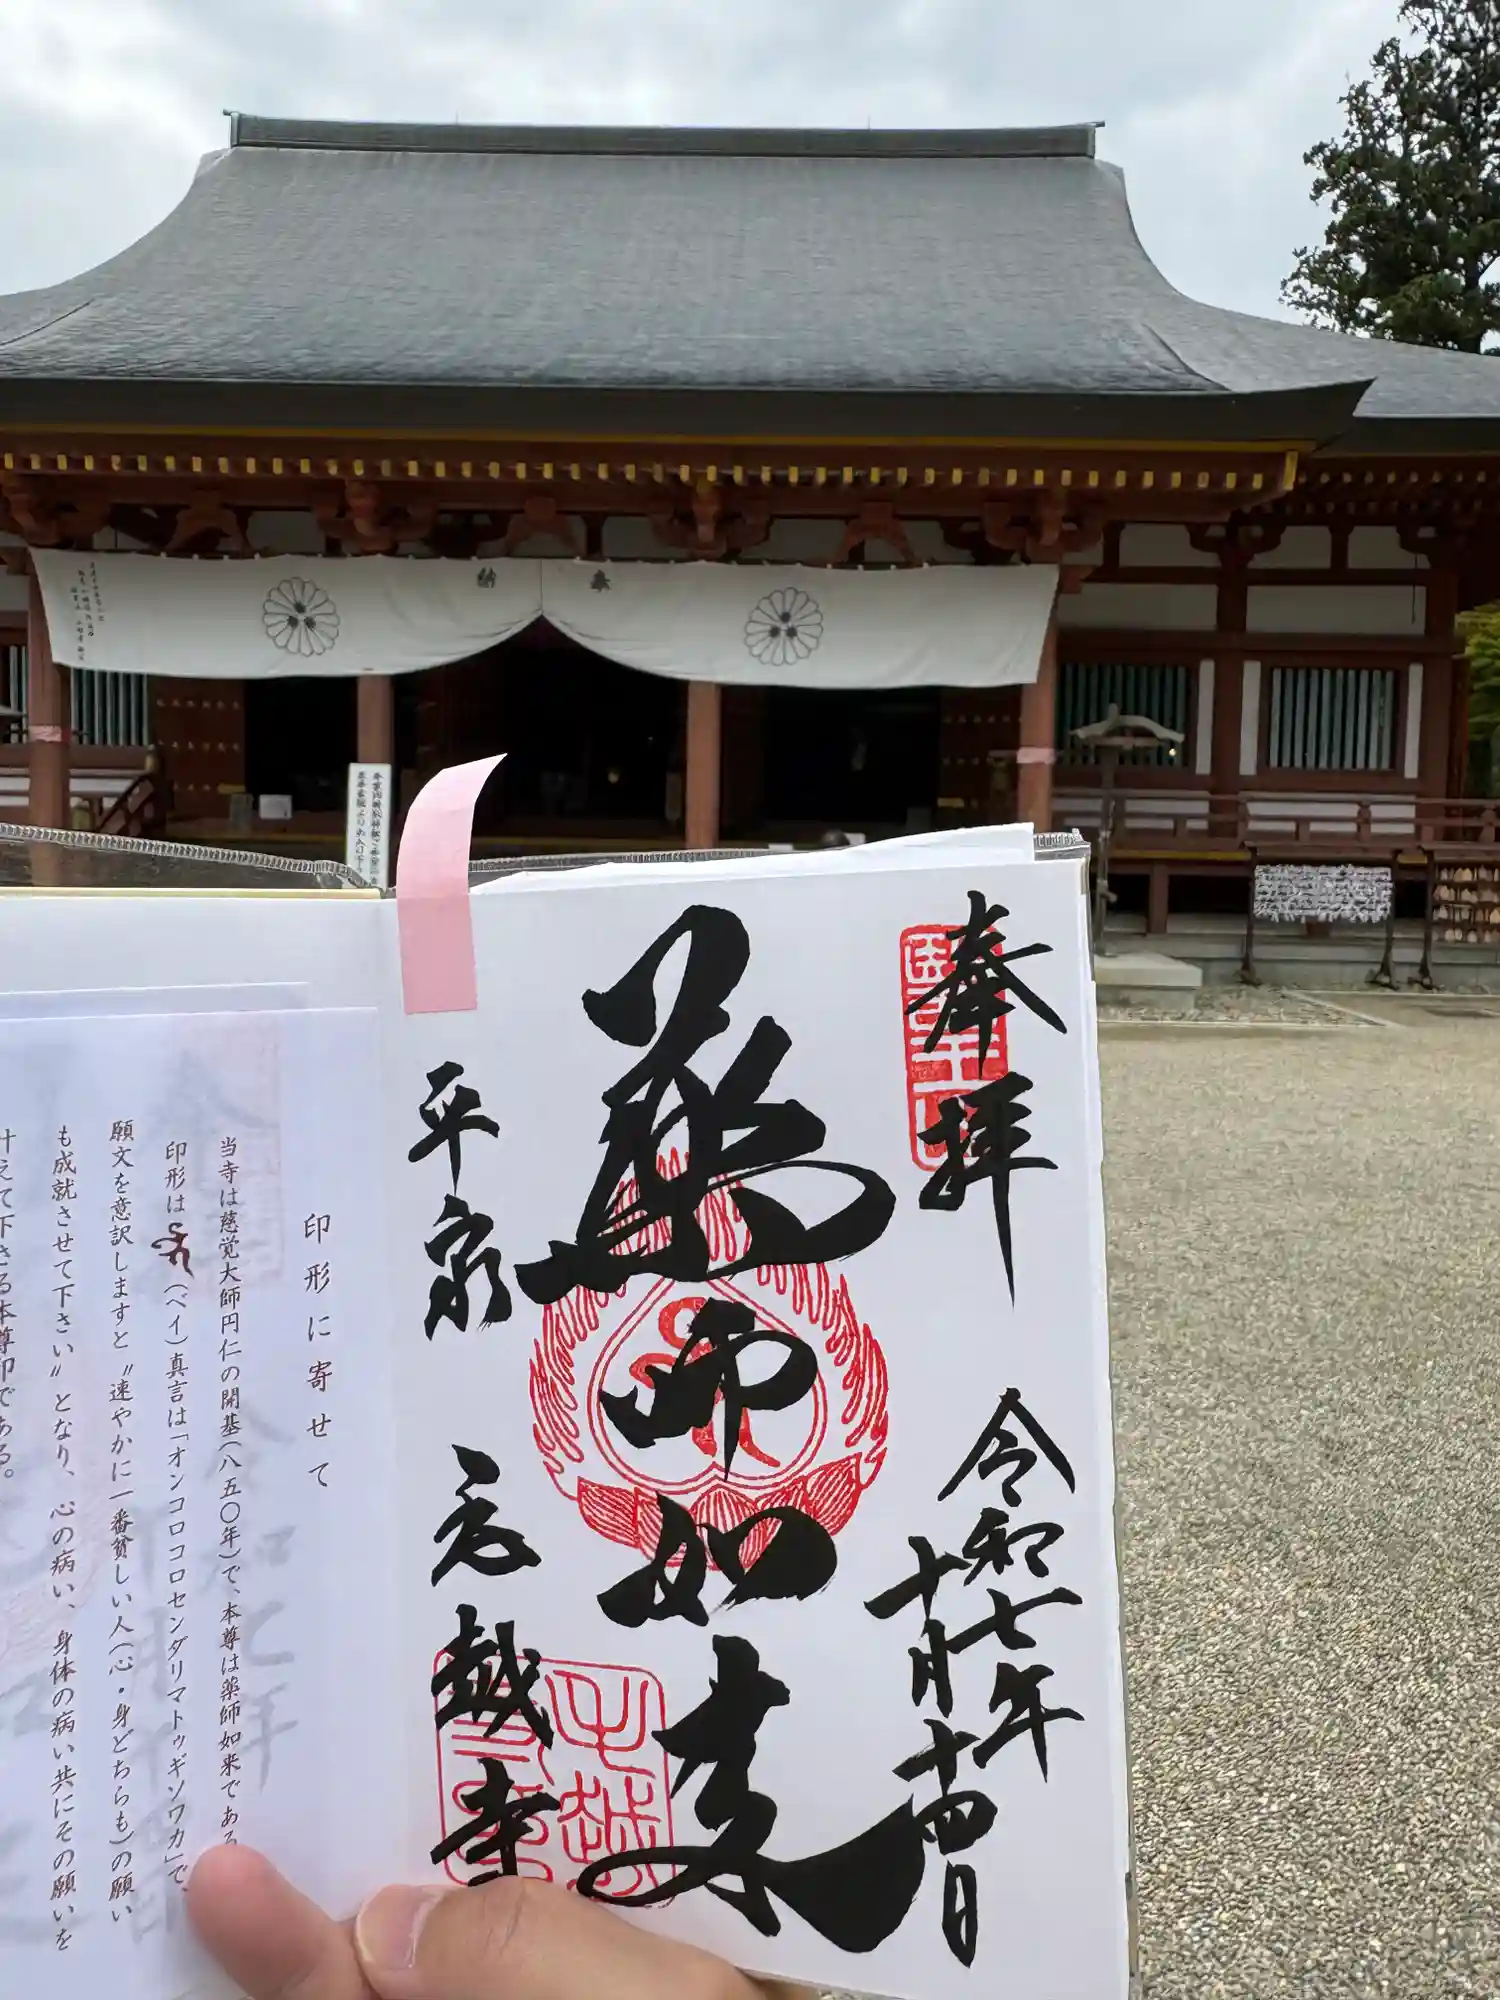 奉納
奉拝
令和七年
十月十四日
薬師如来
平泉
毛越寺
印形に寄せて
当寺は慈覚大師円仁の開基(八五〇年)で、本尊は薬師如来である
印形は(ベイ)真言は「オンコロコロセンダリマトウギソワカ」で、
願文を意訳しますと〝速やかに一番貧しい人(心・身どちらも)の願い
も成就させて下さい〟となり、心の病い、身体の病い共にその願いを
叶えて下さる本尊印である。